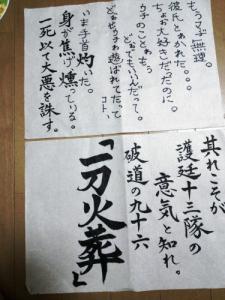 もうマヂ無理。
彼氏とわかれた。。。
ちょお大好きだったのに。
ウチのことゎもぅ
どぉでもいぃんだって。
どぉせウチゎ遊ばれてたってコト、
いま手首灼いた。
身が焦げ燻っている。
一死以て大悪を誅す。
其れこそが
護廷十三隊の
意気と知れ。
破道の九十六
「一刀火葬」